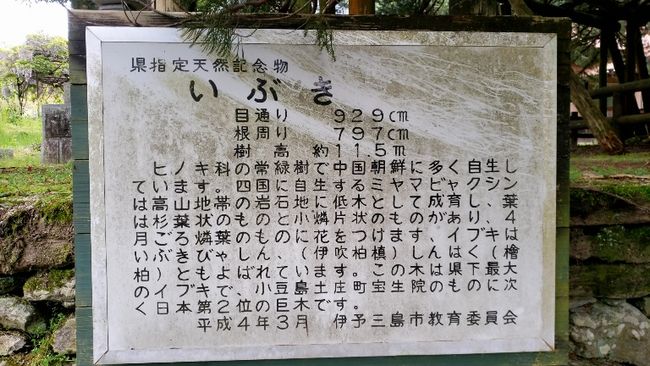 県指定天然記念物
いぶき
目通り 929cm
根周り 797cm
樹高 約11.5m
ヒノキ科の常緑樹で中国朝鮮に多く自生し
ています。四国に自生するミヤマビャクシン
は高山地帯の岩石地に低木として成育し、葉
は杉葉状のものと小燐片状のものがあり、4
月ごろ燐葉のものに花をつけます、イブキは
いぶきびゃくしん、(伊吹柏槙)しんはく(檜
柏)ともよばれています。この木は県下最大
のイブキで、小豆島土庄町宝生院のものに次
く日本第2位の巨木です。
平成4年3月 伊予三島市教育委員会